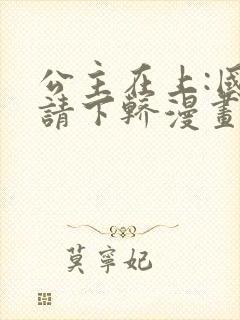 公主在上:國
請下轎漫畫
莫寧妃